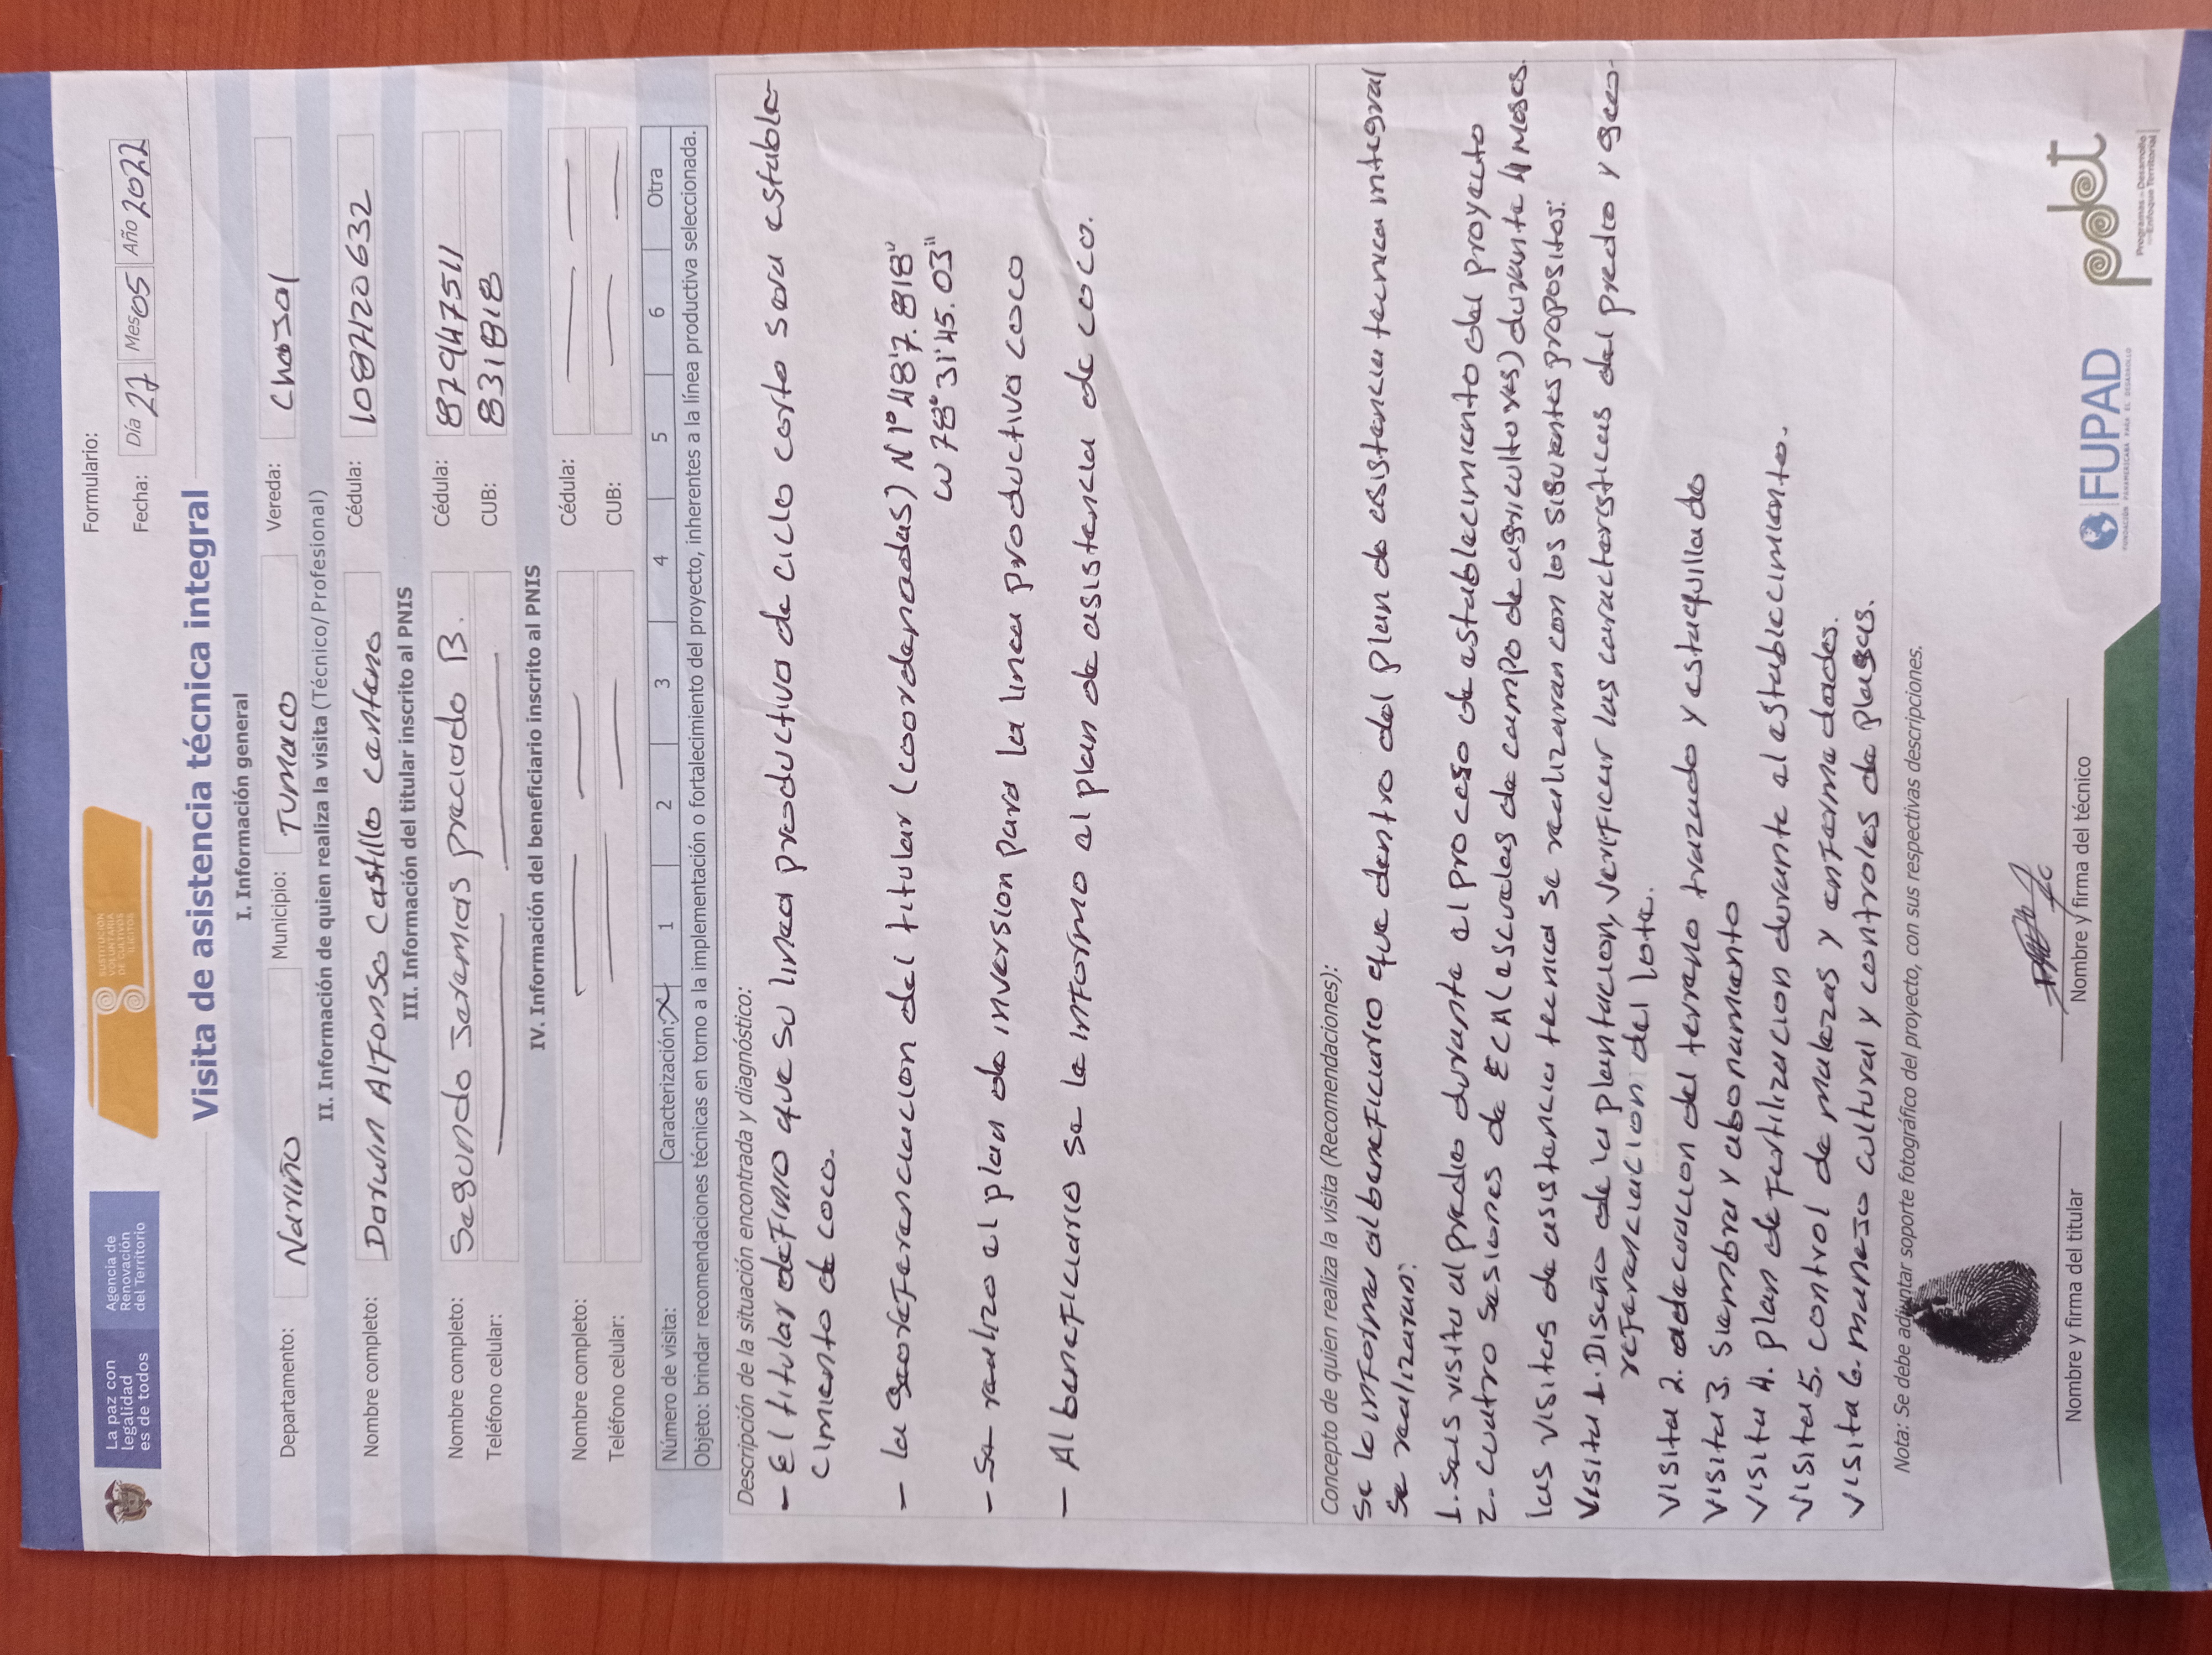 La paz con
legalidad
es de todos
Agencia de
Renovación
del Territorio
SUSTITUCIÓN
VOLUNTARIA
DE CULTIVOS
ILÍCITOS
Formulario:
Fecha: Día 27 Mes 05 Año 2022
Visita de asistencia técnica integral
I. Información general
Departamento: Nariño Municipio: Tumaco Vereda: Chajal
II. Información de quien realiza la visita (Técnico/Profesional)
Nombre completo: Darwin Alfonso Castillo Centeno Cédula: 1087120632
III. Información del titular inscrito al PNIS
Nombre completo: Segundo Jeremias preciado B. Cédula: 87947511
Teléfono celular: CUB: 831818
IV. Información del beneficiario inscrito al PNIS
Nombre completo: Cédula:
Teléfono celular: CUB:
Número de visita: Caracterización: X 1 2 3 4 5 6 Otra
Objeto: brindar recomendaciones técnicas en torno a la implementación o fortalecimiento del proyecto, inherentes a la línea productiva seleccionada.
Descripción de la situación encontrada y diagnóstico:
- El titular definio que su linea productiva de ciclo corto sera estable
cimiento de coco.
- la georeferenciacion del titular (coordenadas) N 1° 48'7.818"
W 78° 31'45.03"
- Se realizo el plan de inversion para la linea productiva coco
- Al beneficiario se le informo el plan de asistencia de coco.
Concepto de quien realiza la visita (Recomendaciones):
Se le informa al beneficiario que dentro del plan de asistencia tecnica integral
se realizaran:
1. Seis visita al predio durante el proceso de establecimiento del proyecto
2. cuatro sesiones de ECA (escuelas de campo de agricultores) durante 4 meses.
las visitas de asistencia tecnica se realizaran con los siguientes propositos:
Visita 1. Diseño de la plantacion, verificar las caracteristicas del predio y geo-
referenciacion del lote.
Visita 2. adecuacion del terreno trazado y estaquillado
Visita 3. siembra y abonamiento
Visita 4. plan de fertilizacion durante el establecimiento.
Visita 5. control de malezas y enfermedades.
Visita 6. manejo cultural y controles de plagas.
Nota: Se debe adjuntar soporte fotográfico del proyecto, con sus respectivas descripciones.
Nombre y firma del titular
Nombre y firma del técnico
FUPAD
FUNDACIÓN PANAMERICANA PARA EL DESARROLLO
pdet
Programas de Desarrollo
con Enfoque Territorial